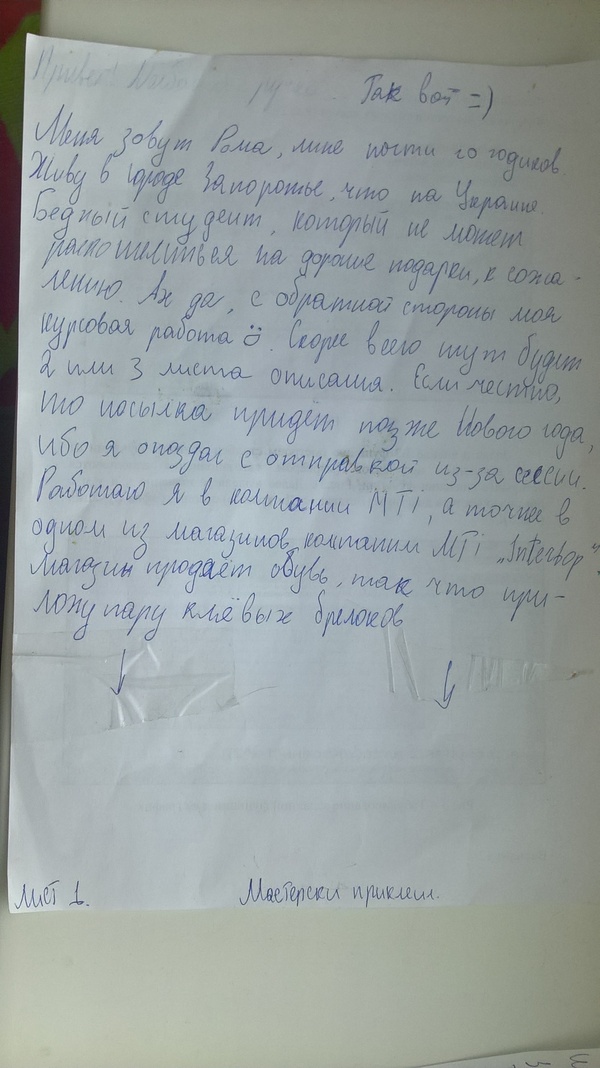 Привет!
Так вот =)
Меня зовут Рома, мне почти 20 годиков.
Живу в городе Запорожье, что на Украине.
Бедный студент, который не может
раскошелиться на дорогие подарки, к сожа-
лению. Ах да, с обратной стороны моя
курсовая работа ت. Скорее всего тут будет
2 или 3 листа описания. Если честно,
то посылка придет позже Нового года,
ибо я опоздал с отправкой из-за сессии.
Работаю я в компании MTi, а точнее в
одном из магазинов компании MTi „Intertop".
Магазин продаёт обувь, так что при-
ложу пару клёвых брелоков
Лист 1.
Мастерски приклеил.